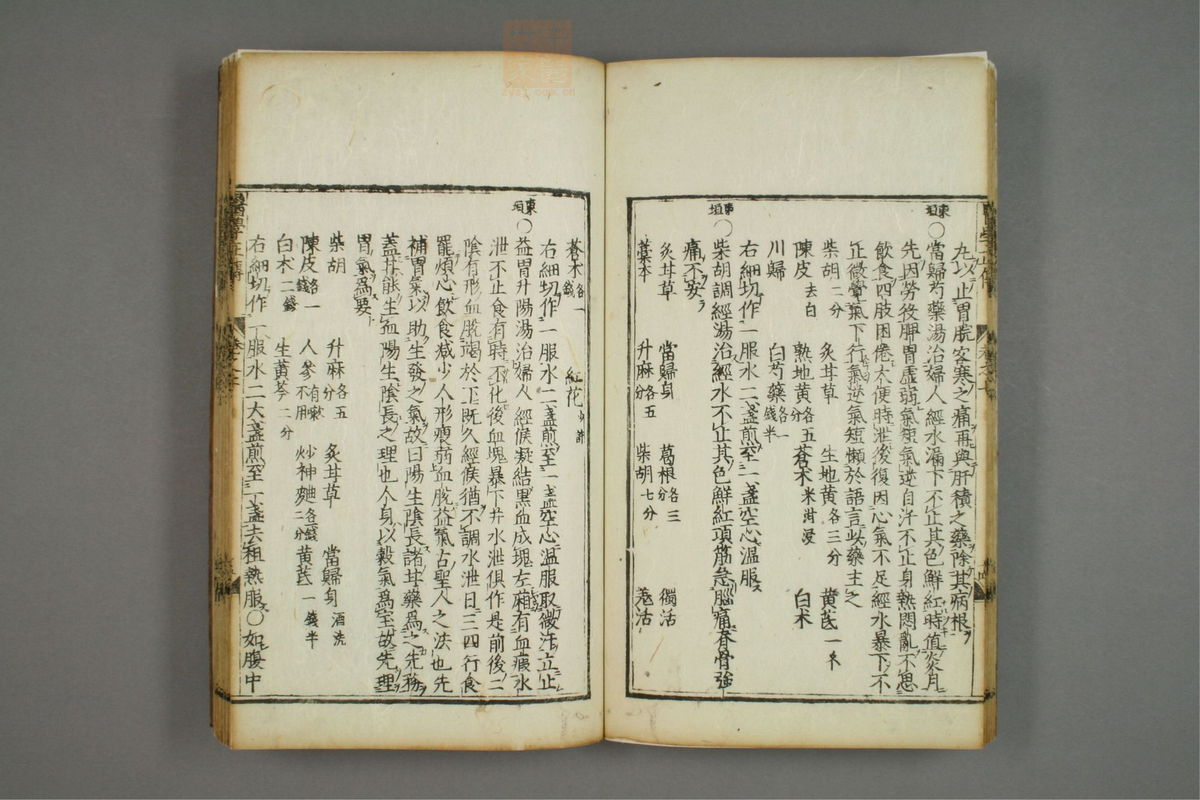 丸以止胃脘客寒之痛再與肝積之藥除其病根
東垣
○當歸芍藥湯治婦人經水漏下不止其色鮮紅時值炎月
先因勞役脾胃虛弱氣短氣逆自汗不止身熱悶亂不思
飲食四肢困倦大便時泄後復因心氣不足經水暴下不
止微覺氣下行氣逆氣短懶於語言此藥主之
柴胡二分 炙甘草 生地黃各三分 黃芪一半
陳皮去白 熟地黃各五分 蒼朮米泔浸 白朮
川歸 白芍藥各一錢半
右細切作一服水二盞煎至一盞空心溫服
東垣
○柴胡調經湯治經水不止其色鮮紅項筋急腦痛脊骨強
痛不安
炙甘草 當歸身 葛根各三分 獨活
藁本 升麻各五分 柴胡七分 羌活
蒼朮各一錢 紅花少許
右細切作一服水二盞煎至一盞空心溫服取微汗立止
東垣
○益胃升陽湯治婦人經候凝結黑血成塊左廂有血瘕水
泄不止食有時不化後血塊暴下并水泄俱作是前後二
陰有形血脫竭於下既久經候猶不調水泄日三四行食
罷煩心飲食減少人形瘦弱血脫益氣古聖人之法也先
補胃氣以助生發之氣故曰陽生陰長諸甘藥為之先務
蓋甘能生血陽生陰長之理也人身以穀氣為宝故先理
胃氣為要
柴胡 升麻各五分 炙甘草 當歸身酒洗
陳皮各一錢 人參有嗽不用 炒神麯各一錢二分 黃芪一錢半
白朮二錢 生黃芩二分
右細切作一服水二大盞煎至一盞去粗熱服○如腹中